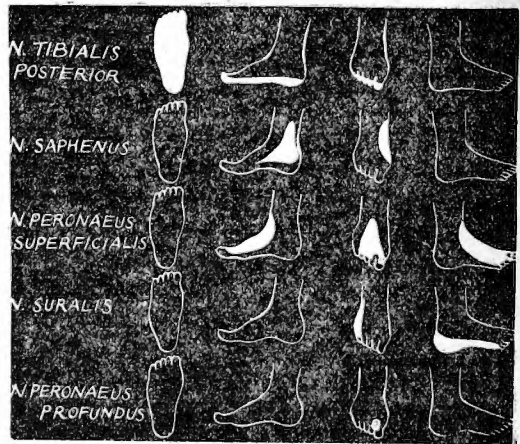 N. TIBIALIS
POSTERIOR
N. SAPHENUS
N. PERONAEUS
SUPERFICIALIS
N. SURALIS
N. PERONAEUS
PROFUNDUS